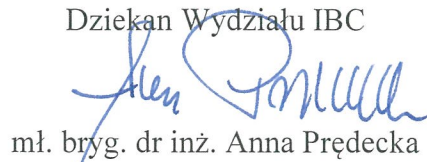 Dziekan Wydziału IBC
mł. bryg. dr inż. Anna Prędecka